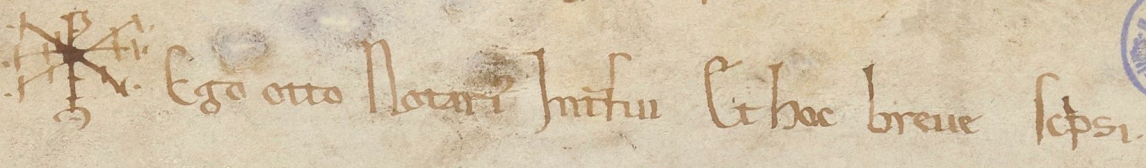 Ego otto Notari᷒ Int̄fui Et hoc breue scp̄si.